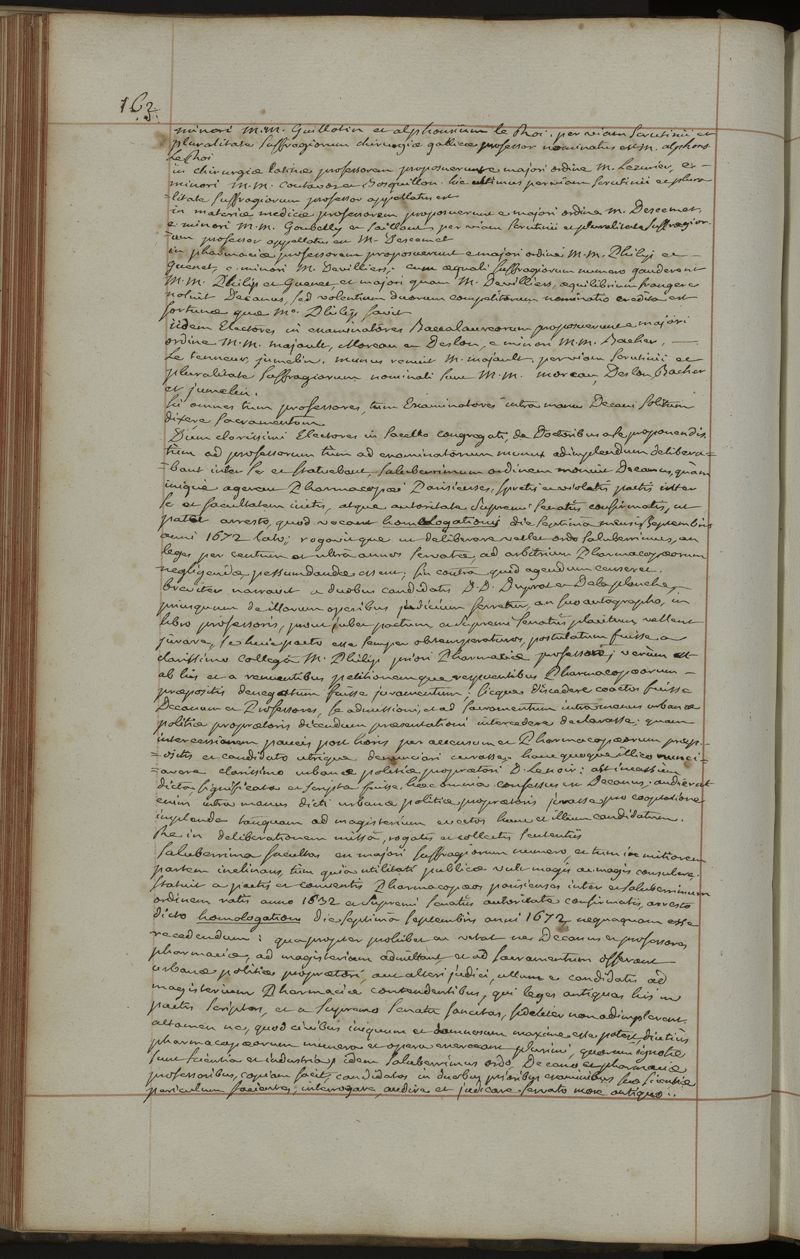 162
minori M.M. Guillotin et alphonsum le Roi. per viam scrutinii et
pluralitate suffragiorum chirurgiæ gallicæ professor nominatus est M. alphons
le Roi
in chirurgiæ latinæ professorem proposuerunt e majori ordine M. Lezurier, e
minori M.M. Coutavoz et Bosquillon. hic ultimus per viam scrutinii et plura
litate suffragiorum professor appellatus est
in materiæ medicæ professorem proposuerunt e majori ordine M. Descemet,
e minori M.M. Goubelly et Saillant, per viam scrutinii et pluralitate suffragior.
um professor appellatus est M. Descemet
in pharmaciæ professorem proposuerunt e majori ordine M.M. Philip et
Guenet, e minori M. Devilliers, cum æquali suffragiorum numero gauderent
M.M. Philip et Guenet, et majori quam M. Devilliers, æquilibrium frangere
noluit Decanus, sed volentium duorum competitorum nominatio credita est
fortunæ quæ Mo. Philip favit
iidem Electores in examinatores Baccalaureorum proposuerunt e majori
ordine M.M. majault, Moreau et Deslon, e minori M.M. Bacher,
Le tenneur, jumelin. munus renuit M. majault, per viam scrutinii et
pluralitate suffragiorum nominati sunt M.M. moreau, Deslon, Bacher
et jumelin.
hi omnes tum professores, tum Examinatores intra manus Decani solitum
dixere sacramentum
Dum clarissimi Electores in sacello congregati, de Doctoribus a se proponendis
tùm ad professorum tùm ad examinatorum munus adimplendum delibera-
bant inter se et statuebant, saluberrimum ordinem monuit Decanus, quàm
iniquè agerent Pharmacopæi Parisienses, spretis et violatis pactis inter
se et facultatem initis, atque autoritate supremi senatûs confirmatis, ut
patet arresto, quod vocant homologationis die septima mensis septembris
anni 1672 lato; rogavitque ut deliberare vellet ordo saluberrimus, an
leges per centum et ultrà annos servatæ, ad arbitrium Pharmacopæorum
negligendæ pessumdandæ essent; sin contrà quid agendum censeret.
breviter narravit a duobus candidatis D.D. Dupont et Delaplanche,
priusquam de illorum operibus judicium ferretur, an suo autographo, in
libro professoris, prout jubet pactum a supremi senatûs placitum vellent
jurare, se huic pacto esse semper obtemperaturos, postulatum fuisse a
clarissimo collega M. Philip priori Pharmaciæ professore; verùm et
ab his et a renuentibus petitionemque respuentibus Pharmacopæorum
præpositis denegatum fuisse juramentum; hicque discedere coactos fuisse
Decanum et Professores, se admissioni, et ad sacramentum intra manus urbanæ
politiæ proprætoris dicendum præsentationi intercedere declarasse: quam
intercessionem paucis post horis per accensum et Pharmacopæorum præp-
ositis et candidato utrique denunciari curasse, hancque illico nunci-
avere clarissimo urbanæ politiæ proprætori D. Lenoir: ast incassum
dicta significata et scripta fuisse hæc omnia confessus est Decanus. audierat
enim intra manus dicti urbanæ politiæ proprætoris jurasse pro cooptatione
implenda tanquam ad magisterium evectos hunc et illum candidatum.
Re in deliberationem missâ, rogatis et collectis sententiis
saluberrima facultas ex majori suffragiorum numero, et tum in mitiorem
partem inclinans, tùm quia utilitati publicæ vult magis ac magis consulere,
statuit a pactis et conventis Pharmacopæos parisienses inter et saluberrimum
ordinem ratis anno 1632 et supremi senatûs autoritate confirmatis, arresto
dicto homologationis die septimâ septembris anni 1672 nequaquam esse
recedendum: quapropter prohibet an vetat ne Decanus et professores
pharmaciæ, ad magisterium admittant et ad sacramentum offerant
urbanæ politiæ proprætori, aut alteri judici, ullum e candidatis ad
magisterium Pharmaciæ contendentibus, qui leges antiquas his in
pactis scriptas, et a supremo senatu sancitas, fideliter non adimpleverit.
attamen ne, quod civibus iniquum et damnosum maxime esse potest, diutiùs
pharmacopæorum munera et opera exerceant plurimi, quorum ignotæ
sunt scientia et industria; idem saluberrimus ordo, Decano et pharmaciæ
professoribus, copiam facit candidatos in duobus prioribus examinibus suæ scientiæ
periculum facientes, interrogare, audire et judicare servato more antiquo.